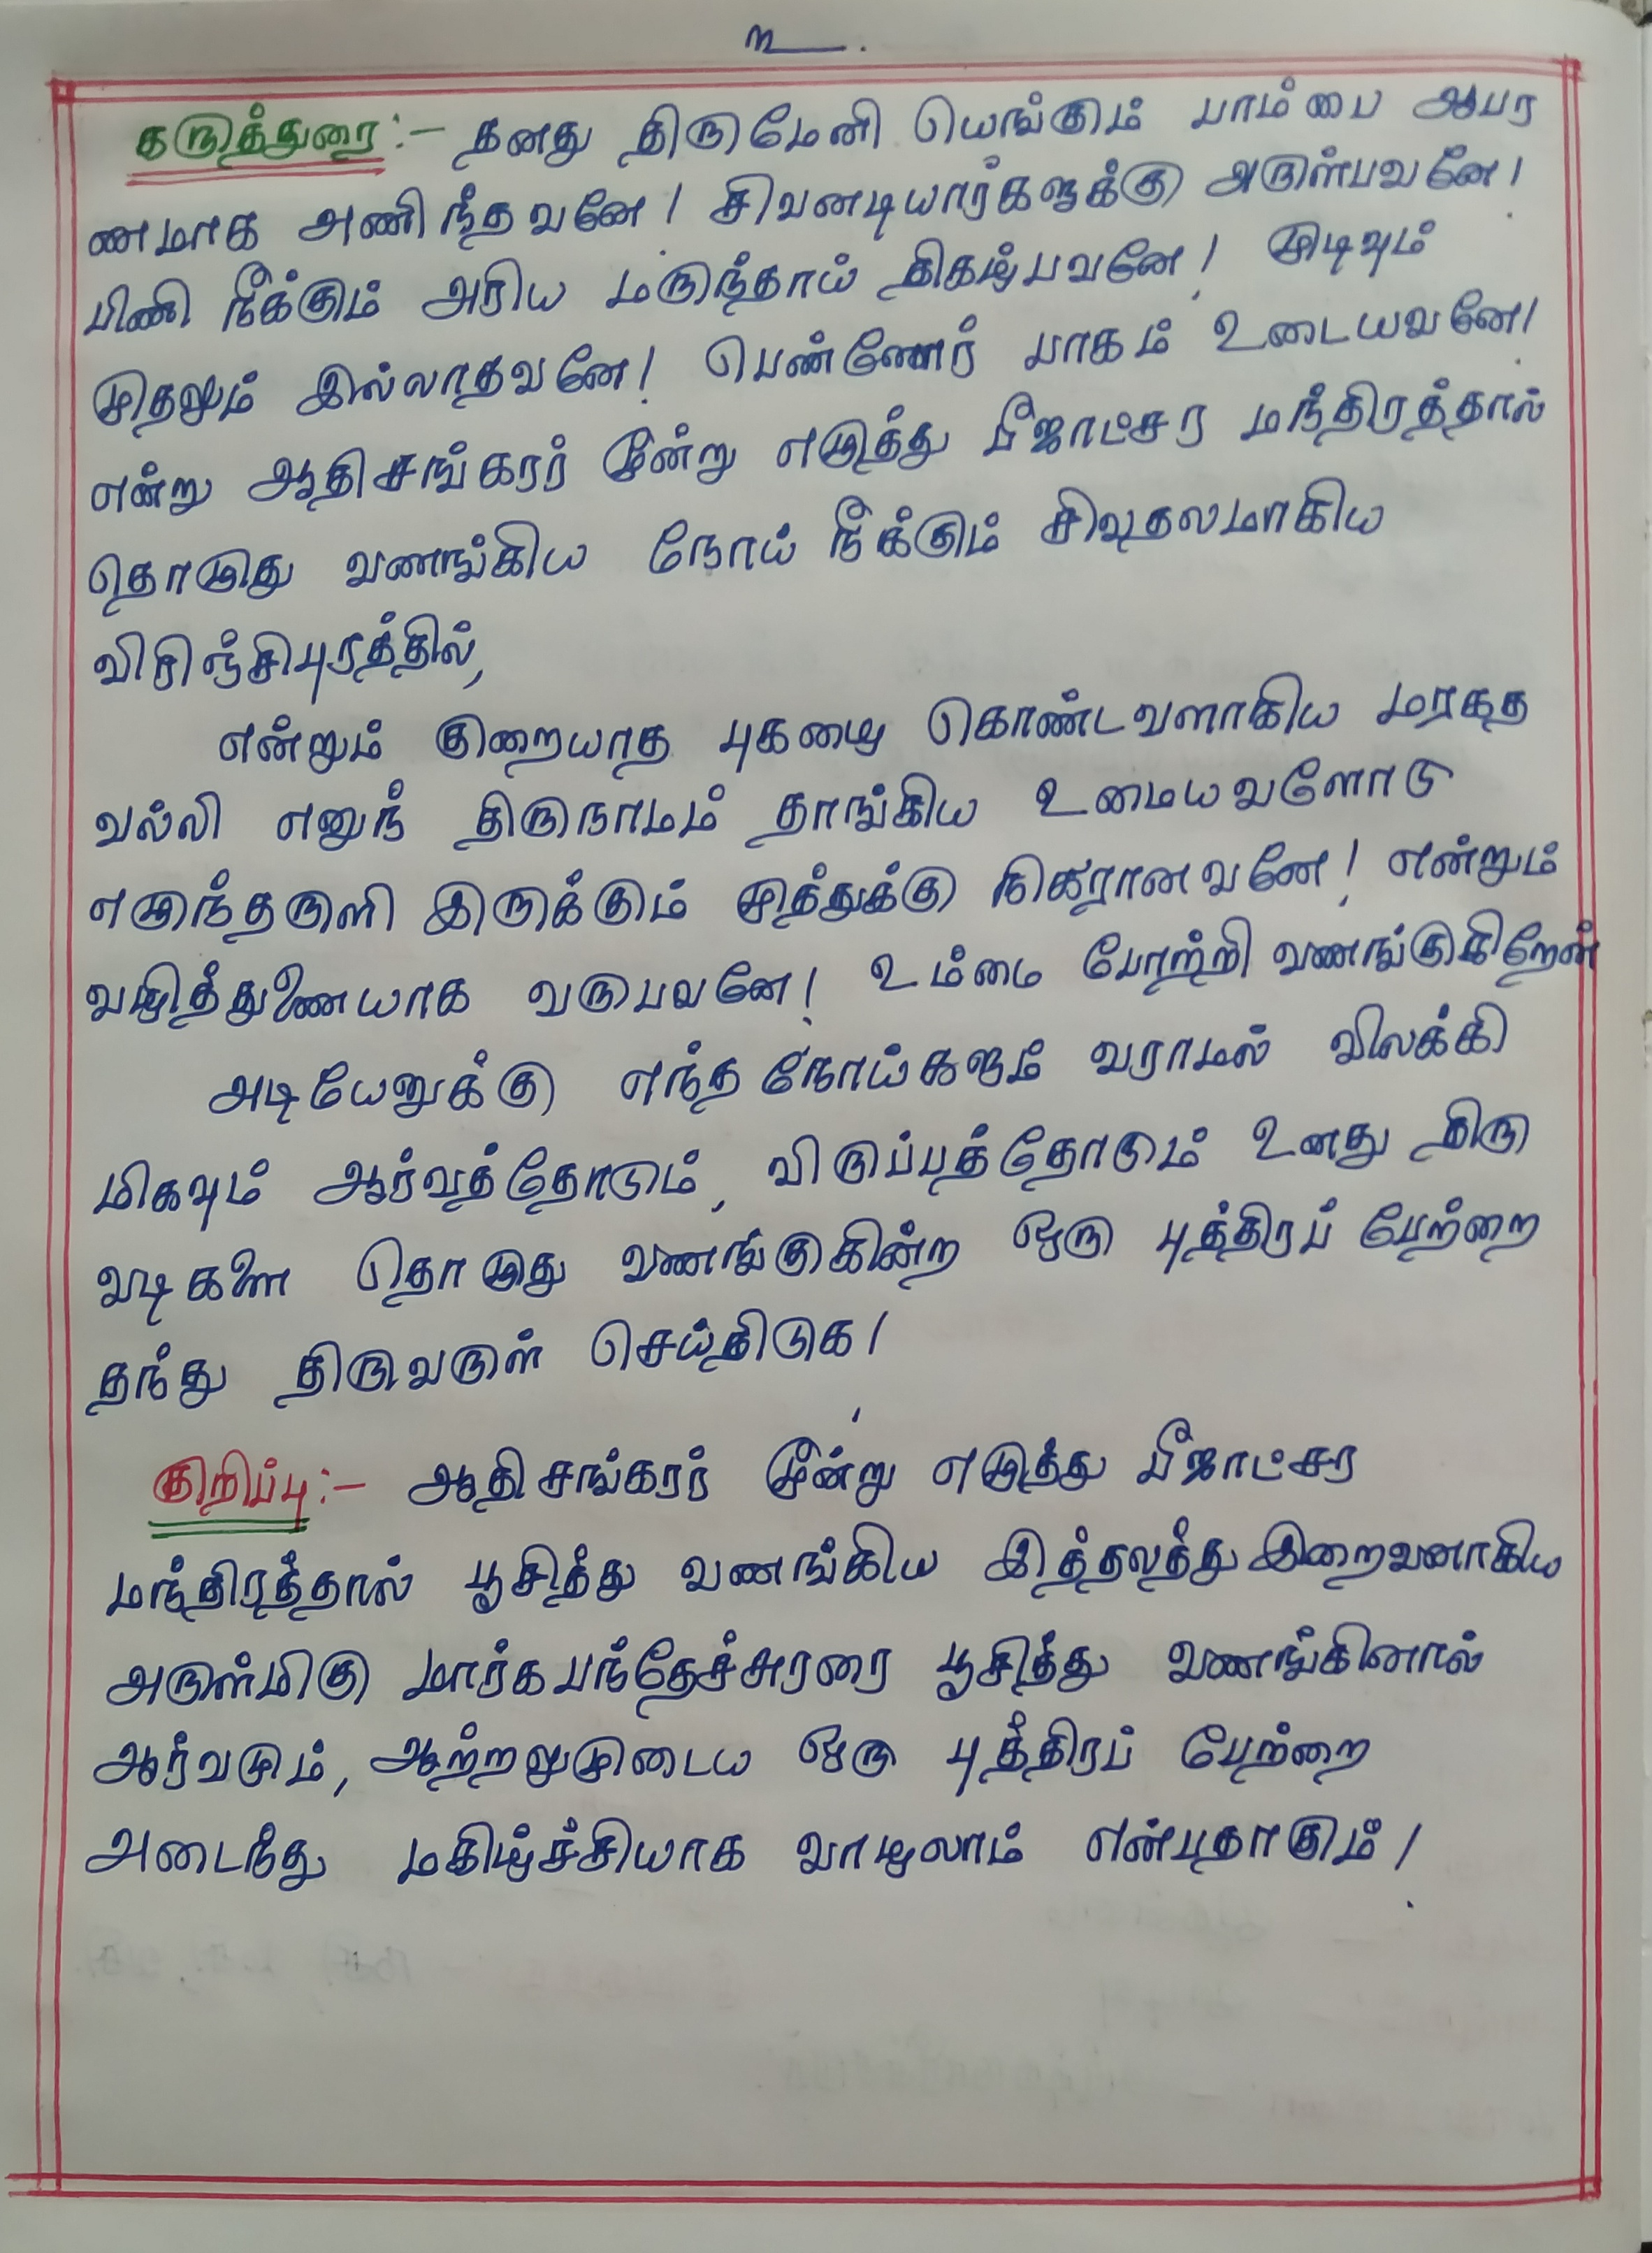 ௩.
கருத்துரை:- தனது திருமேனி யெங்கும் பாம்பை ஆபர
ணமாக அணிந்தவனே! சிவனடியார்களுக்கு அருள்பவனே!
பிணி நீக்கும் அரிய மருந்தாய் திகழ்பவனே! முடிவும்
முதலும் இல்லாதவனே! பெண்ணோர் பாகம் உடையவனே!
என்று ஆதிசங்கரர் மூன்று எழுத்து பீஜாட்சர மந்திரத்தால்
தொழுது வணங்கிய நோய் நீக்கும் சிவதலமாகிய
விரிஞ்சிபுரத்தில்,
என்றும் குறையாத புகழை கொண்டவளாகிய மரகத
வல்லி எனுந் திருநாமம் தாங்கிய உமையவளோடு
எழுந்தருளி இருக்கும் முத்துக்கு நிகரானவணே! என்றும்
வழித்துணையாக வருபவனே! உம்மை போற்றி வணங்குகிறேன்
அடியேனுக்கு எந்த நோய்களும் வராமல் விலக்கி
மிகவும் ஆர்வத்தோடும், விருப்பத்தோடும் உனது திரு
வடிகளை தொழுது வணங்குகின்ற ஒரு புத்திரப் பேற்றை
தந்து திருவருள் செய்திடுக!
குறிப்பு:- ஆதிசங்கரர் மூன்று எழுத்து பீஜாட்சர
மந்திரத்தால் பூசித்து வணங்கிய இத்தலத்து இறைவனாகிய
அருள்மிகு மார்கபந்தேச்சுரரை பூசித்து வணங்கினால்
ஆர்வமும், ஆற்றலுமுடைய ஒரு புத்திரப் பேற்றை
அடைந்து மகிழ்ச்சியாக வாழலாம் என்பதாகும்!